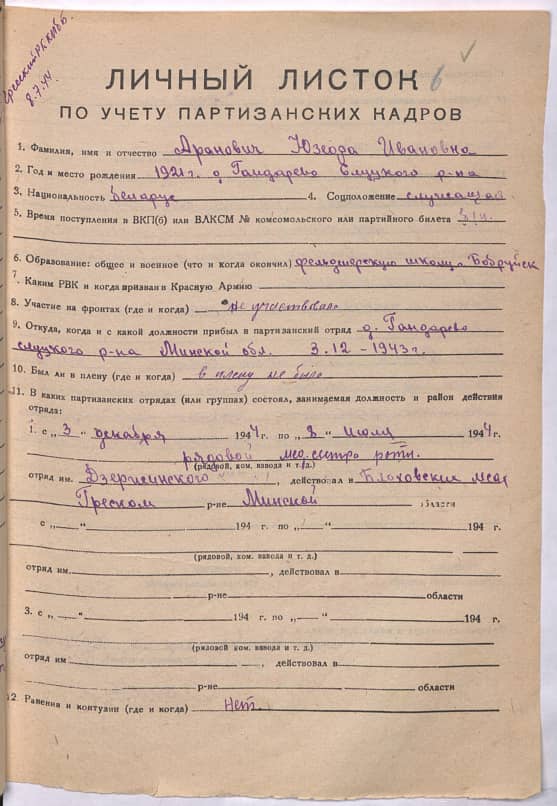 8.7.44.
ЛИЧНЫЙ ЛИСТОК 6
ПО УЧЕТУ ПАРТИЗАНСКИХ КАДРОВ
1. Фамилия, имя и отчество Аранович Юзефа Ивановна
2. Год и место рождения 1921 г. д. Гандарево Слуцкого р-на
3. Национальность Беларус 4. Соцположение служащая
5. Время поступления в ВКП(б) или ВЛКСМ № комсомольского или партийного билета
6. Образование: общее и военное (что и когда окончил) фельдшерскую школу Бобруйск
7. Каким РВК и когда призван в Красную Армию
8. Участие на фронтах (где и когда) не участвовала
9. Откуда, когда и с какой должности прибыл в партизанский отряд д. Гандарево
слуцкого р-на Минской обл. 3.12-1943 г.
10. Был ли в плену (где и когда) в плену не была
11. В каких партизанских отрядах (или группах) состоял, занимаемая должность и район действия
отряда:
1. с „3" декабря 1944 г. по „8" июля 1944 г.
рядовой мед. сестра роты.
(рядовой, ком. взвода и т. д.)
отряд им. Дзержинского, действовал в
р-не Минской области
с „ " 194 г. по „ " 194 г.
(рядовой, ком. взвода и т. д.)
отряд им. , действовал в
р-не области
3. с „ " 194 г. по „ " 194 г.
(рядовой, ком. взвода и т. д.)
отряд им , действовал в
р-не области
12. Ранения и контузии (где и когда) Нет.